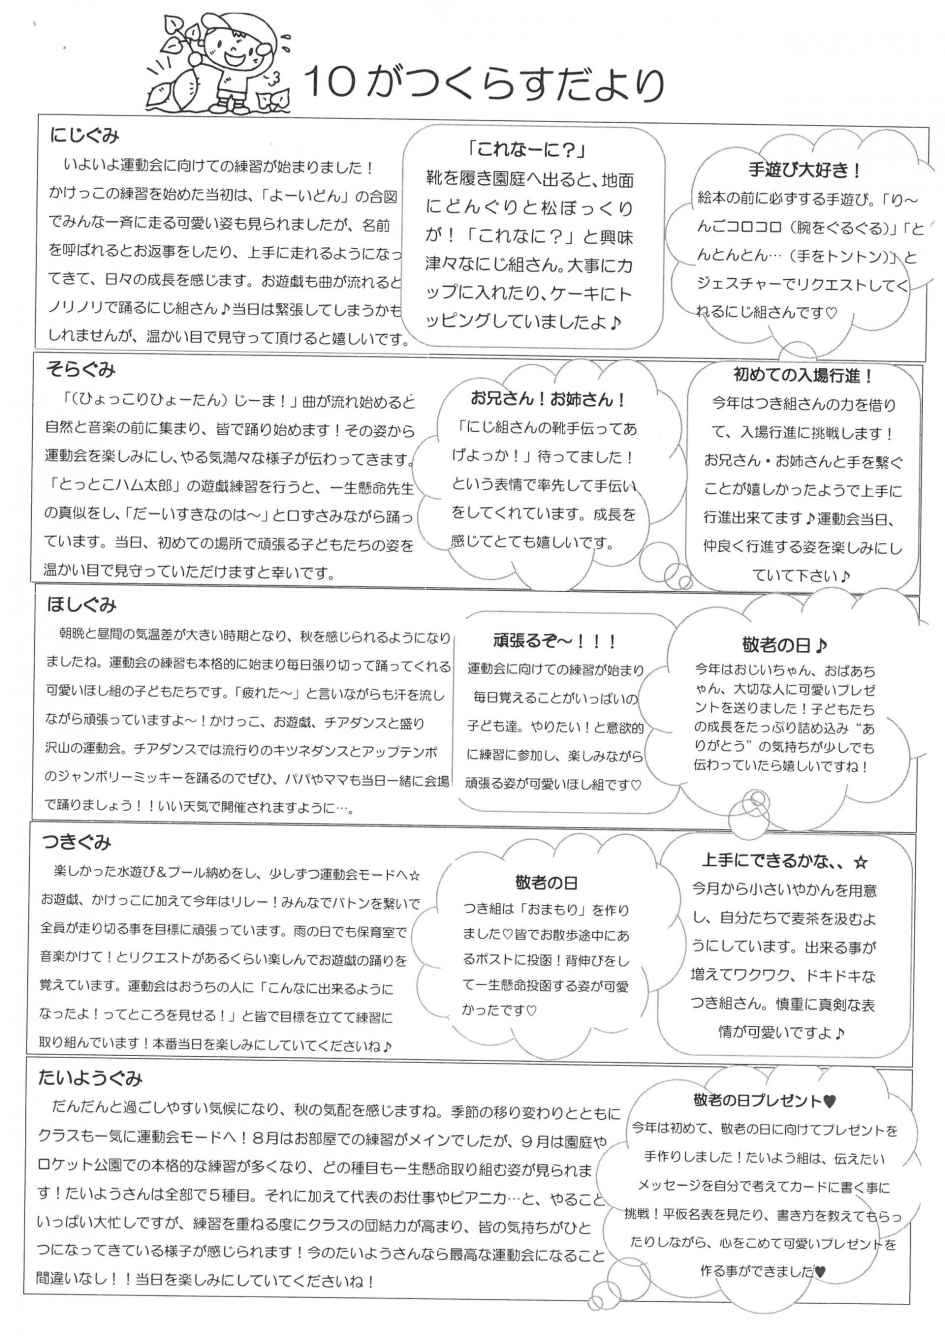 10がつくらすだより
にじぐみ
いよいよ運動会に向けての練習が始まりました！
かけっこの練習を始めた当初は、「よーいどん」の合図
でみんな一斉に走る可愛い姿も見られましたが、名前
を呼ばれるとお返事をしたり、上手に走れるようになっ
てきて、日々の成長を感じます。お遊戯も曲が流れると
ノリノリで踊るにじ組さん♪当日は緊張してしまうかも
しれませんが、温かい目で見守って頂けると嬉しいです。
「これなーに？」
靴を履き園庭へ出ると、地面
にどんぐりと松ぼっくり
が！「これなに？」と興味
津々なにじ組さん。大事にカ
ップに入れたり、ケーキにト
ッピングしていましたよ♪
手遊び大好き！
絵本の前に必ずする手遊び。「り～
んごコロコロ（腕をぐるぐる）」「と
んとんとん…（手をトントン）」と
ジェスチャーでリクエストしてく
れるにじ組さんです♡
そらぐみ
「（ひょっこりひょーたん）じーま！」曲が流れ始めると
自然と音楽の前に集まり、皆で踊り始めます！その姿から
運動会を楽しみにし、やる気満々な様子が伝わってきます。
「とっとこハム太郎」の遊戯練習を行うと、一生懸命先生
の真似をし、「だーいすきなのは～」と口ずさみながら踊っ
ています。当日、初めての場所で頑張る子どもたちの姿を
温かい目で見守っていただけますと幸いです。
お兄さん！お姉さん！
「にじ組さんの靴手伝ってあ
げよっか！」待ってました！
という表情で率先して手伝い
をしてくれています。成長を
感じてとても嬉しいです。
初めての入場行進！
今年はつき組さんの力を借り
て、入場行進に挑戦します！
お兄さん・お姉さんと手を繋ぐ
ことが嬉しかったようで上手に
行進出来てます♪運動会当日、
仲良く行進する姿を楽しみにし
ていて下さい♪
ほしぐみ
朝晩と昼間の気温差が大きい時期となり、秋を感じられるようになり
ましたね。運動会の練習も本格的に始まり毎日張り切って踊ってくれる
可愛いほし組の子どもたちです。「疲れた～」と言いながらも汗を流し
ながら頑張っていますよ～！かけっこ、お遊戯、チアダンスと盛り
沢山の運動会。チアダンスでは流行りのキツネダンスとアップテンポ
のジャンボリーミッキーを踊るのでぜひ、パパやママも当日一緒に会場
で踊りましょう！！いい天気で開催されますように…。
頑張るぞ～！！！
運動会に向けての練習が始まり
毎日覚えることがいっぱいの
子ども達。やりたい！と意欲的
に練習に参加し、楽しみながら
頑張る姿が可愛いほし組です♡
敬老の日♪
今年はおじいちゃん、おばあち
ゃん、大切な人に可愛いプレゼ
ントを送りました！子どもたち
の成長をたっぷり詰め込み“あ
りがとう”の気持ちが少しでも
伝わっていたら嬉しいですね！
つきぐみ
楽しかった水遊び＆プール納めをし、少しずつ運動会モードへ☆
お遊戯、かけっこに加えて今年はリレー！みんなでバトンを繋いで
全員が走り切る事を目標に頑張っています。雨の日でも保育室で
音楽かけて！とリクエストがあるくらい楽しんでお遊戯の踊りを
覚えています。運動会はおうちの人に「こんなに出来るように
なったよ！ってところを見せる！」と皆で目標を立てて練習に
取り組んでいます！本番当日を楽しみにしていてくださいね♪
敬老の日
つき組は「おまもり」を作り
ました♡皆でお散歩途中にあ
るポストに投函！背伸びをし
て一生懸命投函する姿が可愛
かったです♡
上手にできるかな、、☆
今月から小さいやかんを用意
し、自分たちで麦茶を汲むよ
うにしています。出来る事が
増えてワクワク、ドキドキな
つき組さん。慎重に真剣な表
情が可愛いですよ♪
たいようぐみ
だんだんと過ごしやすい気候になり、秋の気配を感じますね。季節の移り変わりとともに
クラスも一気に運動会モードへ！８月はお部屋での練習がメインでしたが、９月は園庭や
ロケット公園での本格的な練習が多くなり、どの種目も一生懸命取り組む姿が見られま
す！たいようさんは全部で５種目。それに加えて代表のお仕事やピアニカ…と、やること
いっぱい大忙しですが、練習を重ねる度にクラスの団結力が高まり、皆の気持ちがひと
つになってきている様子が感じられます！今のたいようさんなら最高な運動会になること
間違いなし！！当日を楽しみにしていてくださいね！
敬老の日プレゼント♥
今年は初めて、敬老の日に向けてプレゼントを
手作りしました！たいよう組は、伝えたい
メッセージを自分で考えてカードに書く事に
挑戦！平仮名表を見たり、書き方を教えてもらっ
たりしながら、心をこめて可愛いプレゼントを
作る事ができました♥